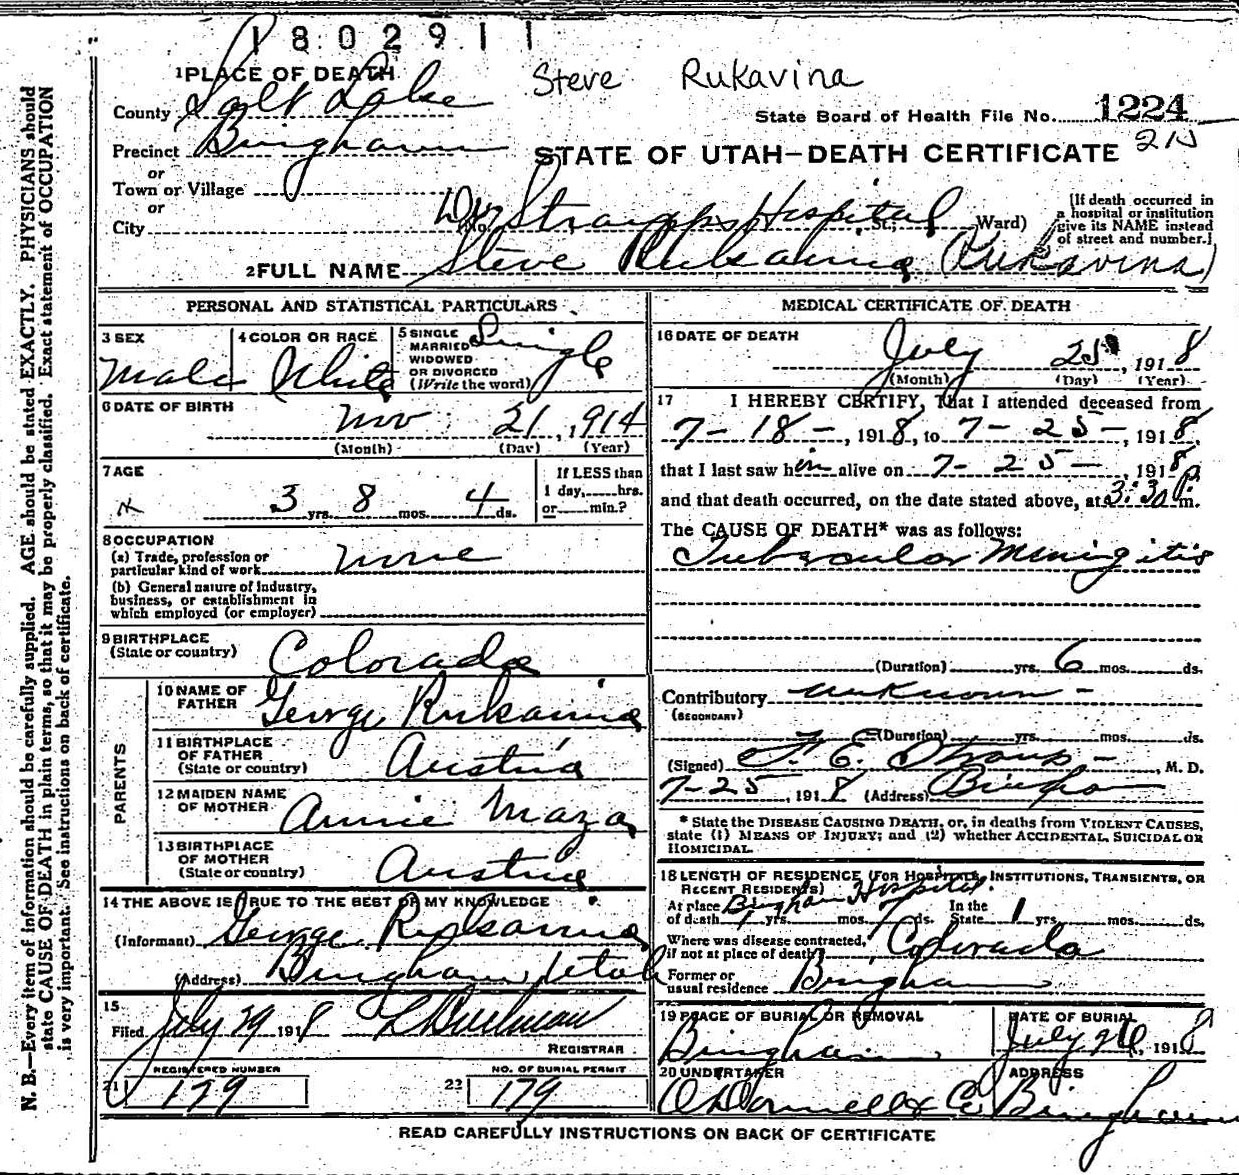 1802911
Steve Rukavina
1 PLACE OF DEATH
County Salt Lake
State Board of Health File No. 1224
Precinct Bingham
or
STATE OF UTAH—DEATH CERTIFICATE
Town or Village
or
City
No. Dr Straups Hospital St.; Ward)
[If death occurred in
a hospital or institution
give its NAME instead
of street and number.]
2 FULL NAME Steve Rukavina (Rukavina)
PERSONAL AND STATISTICAL PARTICULARS
3 SEX
Male
4 COLOR OR RACE
White
5 SINGLE
MARRIED
WIDOWED
OR DIVORCED
(Write the word)
Single
6 DATE OF BIRTH
Nov 21, 1914
(Month) (Day) (Year)
7 AGE
3 yrs. 8 mos. 4 ds.
If LESS than
1 day, hrs.
or min.?
8 OCCUPATION
(a) Trade, profession or
particular kind of work none
(b) General nature of industry,
business, or establishment in
which employed (or employer)
9 BIRTHPLACE
(State or country) Colorado
PARENTS
10 NAME OF
FATHER George Rukavina
11 BIRTHPLACE
OF FATHER
(State or country) Austria
12 MAIDEN NAME
OF MOTHER Annie Maza
13 BIRTHPLACE
OF MOTHER
(State or country) Austria
14 THE ABOVE IS TRUE TO THE BEST OF MY KNOWLEDGE
(Informant) George Rukavina
(Address) Bingham, Utah
15
Filed July 29 1918
REGISTRAR
21 REGISTERED NUMBER
179
22 NO. OF BURIAL PERMIT
179
MEDICAL CERTIFICATE OF DEATH
16 DATE OF DEATH
July 25, 1918
(Month) (Day) (Year)
17 I HEREBY CERTIFY, That I attended deceased from
7-18-, 1918, to 7-25-, 1918,
that I last saw him alive on 7-25-, 1918
and that death occurred, on the date stated above, at 3:30 P. m.
The CAUSE OF DEATH* was as follows:
Tubercular Miningitis
(Duration) yrs. 6 mos. ds.
Contributory unknown -
(SECONDARY)
(Duration) yrs. mos. ds.
(Signed) F. E. Straup - , M. D.
7-25, 1918 (Address) Bingham
* State the DISEASE CAUSING DEATH, or, in deaths from VIOLENT CAUSES,
state (1) MEANS OF INJURY; and (2) whether ACCIDENTAL, SUICIDAL OR
HOMICIDAL.
18 LENGTH OF RESIDENCE (FOR HOSPITALS, INSTITUTIONS, TRANSIENTS, OR
RECENT RESIDENTS)
Bingham Hospital.
At place
of death 1 yrs. mos. 7 ds. In the
State 1 yrs. mos. ds.
Where was disease contracted,
if not at place of death? Colorado
Former or
usual residence Bingham
19 PLACE OF BURIAL OR REMOVAL
Bingham
DATE OF BURIAL
July 26, 1918
20 UNDERTAKER
O'Donnell & Co
ADDRESS
Bingham
READ CAREFULLY INSTRUCTIONS ON BACK OF CERTIFICATE
N. B.—Every item of information should be carefully supplied. AGE should be stated EXACTLY. PHYSICIANS should
state CAUSE OF DEATH in plain terms, so that it may be properly classified. Exact statement of OCCUPATION
is very important. See instructions on back of certificate.